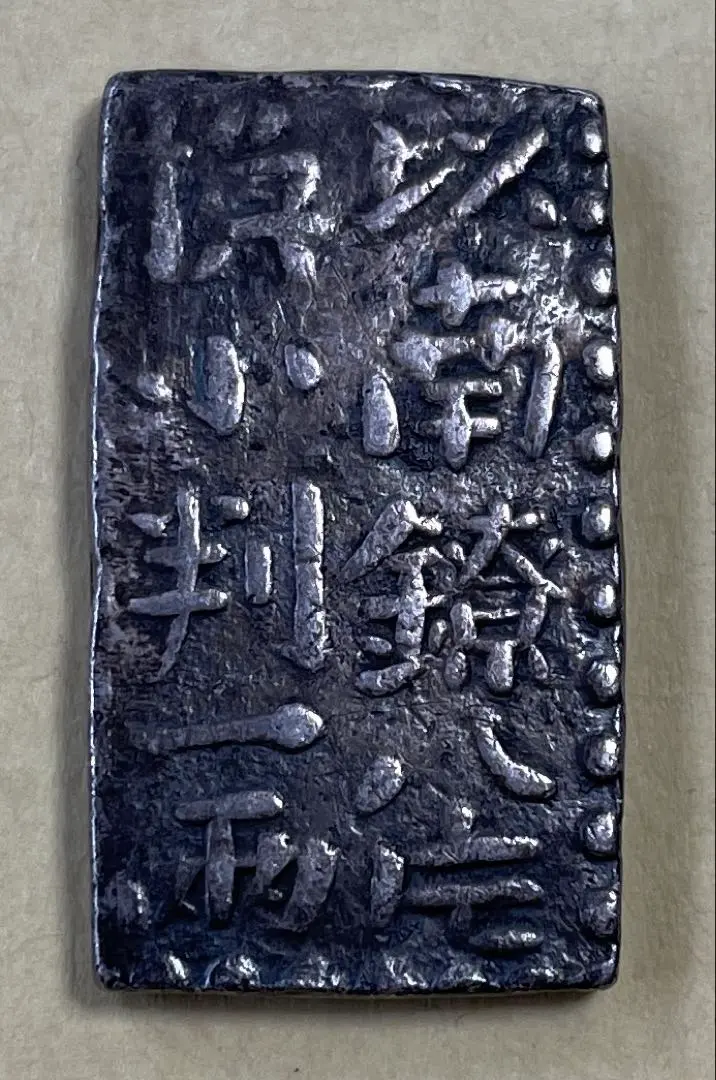 以南鐐八片
換小判一兩